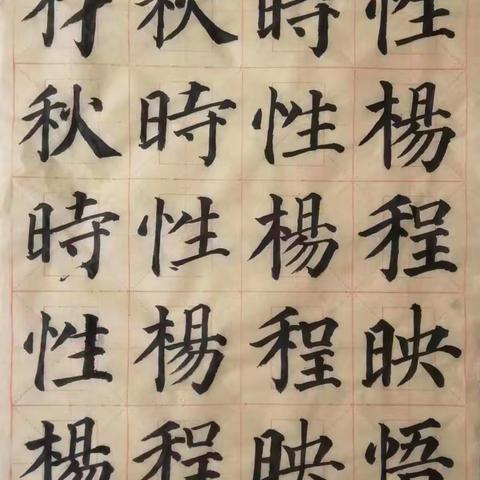 材秋時性
秋時性楊
時性楊程
性楊程映
楊程映悟